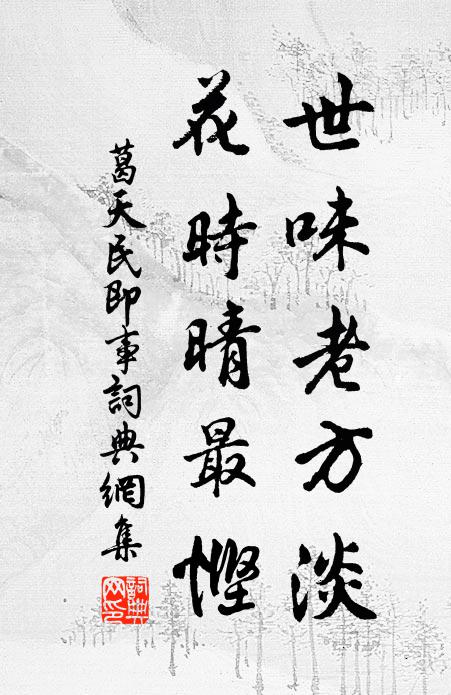 世味老方淡
花時晴最慳
葛天民即事詞典網集